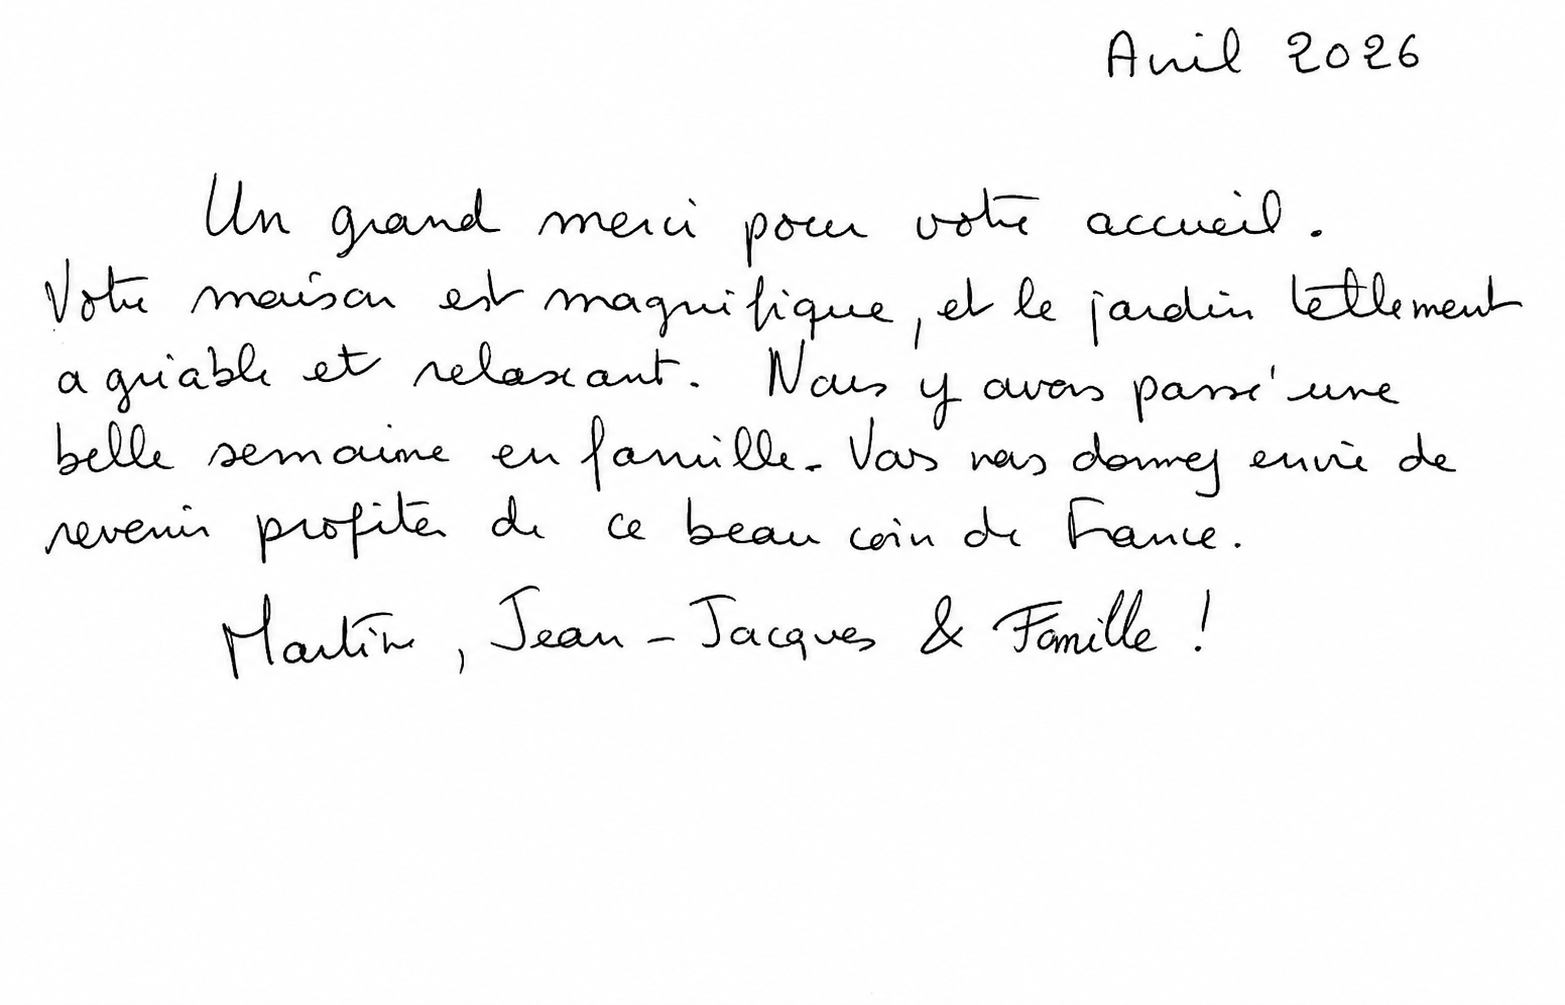 Avril 2026
Un grand merci pour votre accueil.
Votre maison est magnifique, et le jardin tellement
agréable et relaxant. Nous y avons passé une
belle semaine en famille. Vous nous donnez envie de
revenir profiter de ce beau coin de France.
Martine, Jean-Jacques & Famille !